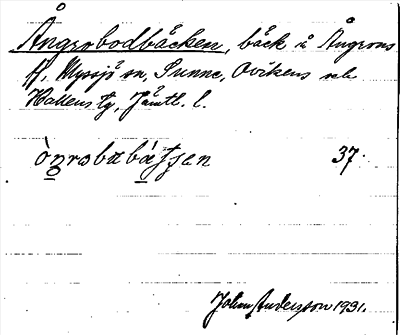 Å
Ångrobodbäcken, bäck i Ångrons
fl, Myssjö sn, Sunne, Ovikens och
Hallens tg, Jämtl. l.
òŋrobabáʃʃen 37.
John Andersson 1931.